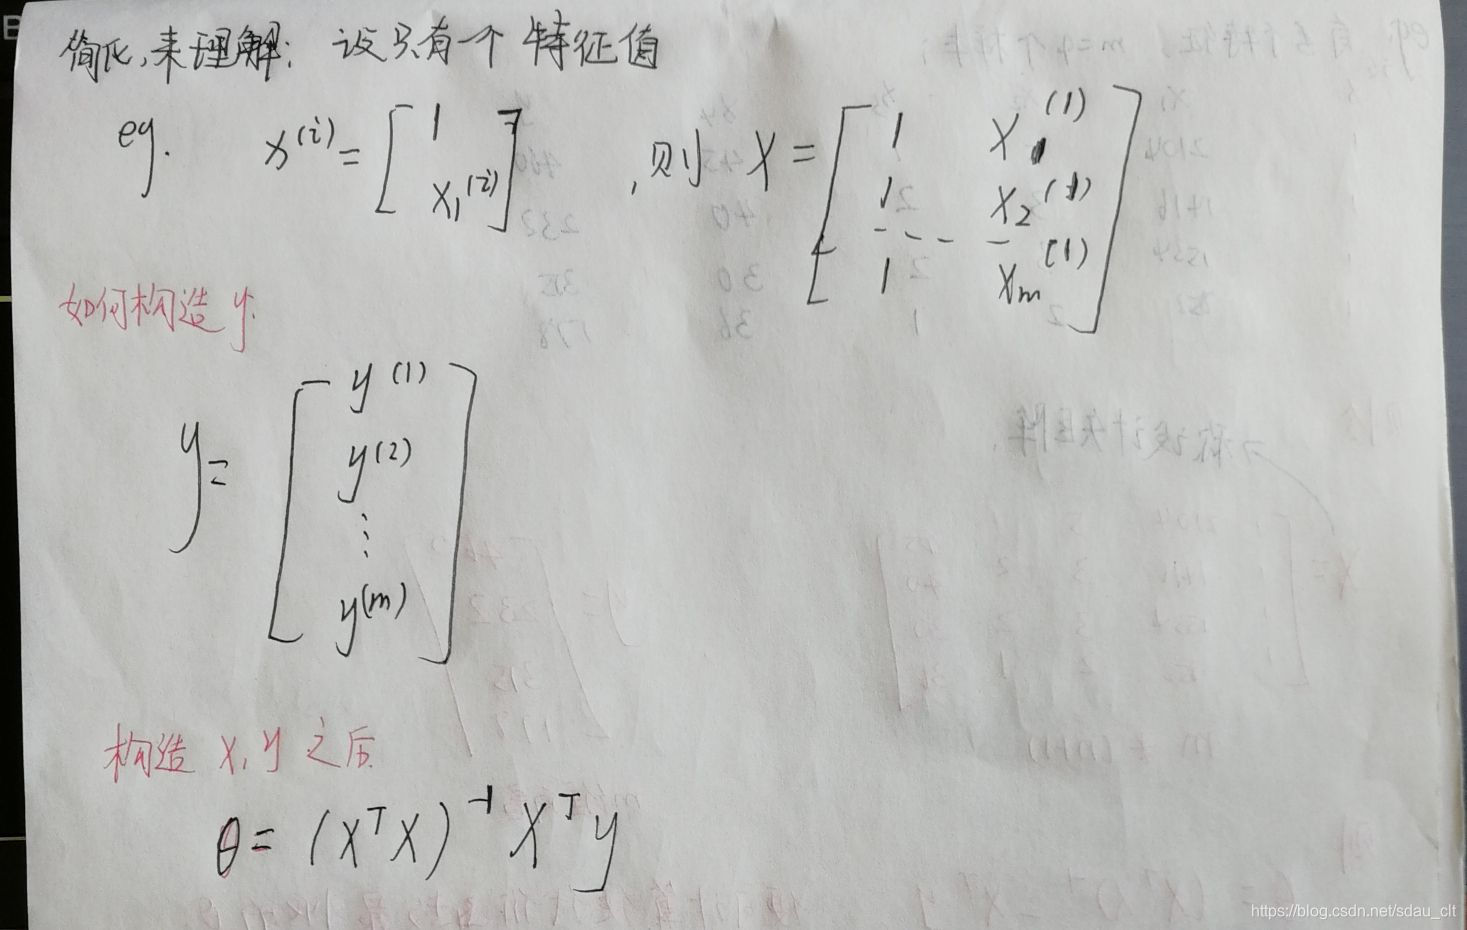 简化,来理解: 设只有一个特征值
eg. x^(i) = [ 1 ; x₁^(i) ] ,则 X = [ 1 x₁^(1) ; 1 x₂^(1) ; - - - - ; 1 xm^(1) ]
如何构造y:
y = [ y^(1) ; y^(2) ; ⋮ ; y^(m) ]
构造 X, y 之后
θ = (X^T X)^-1 X^T y
https://blog.csdn.net/sdau_clt